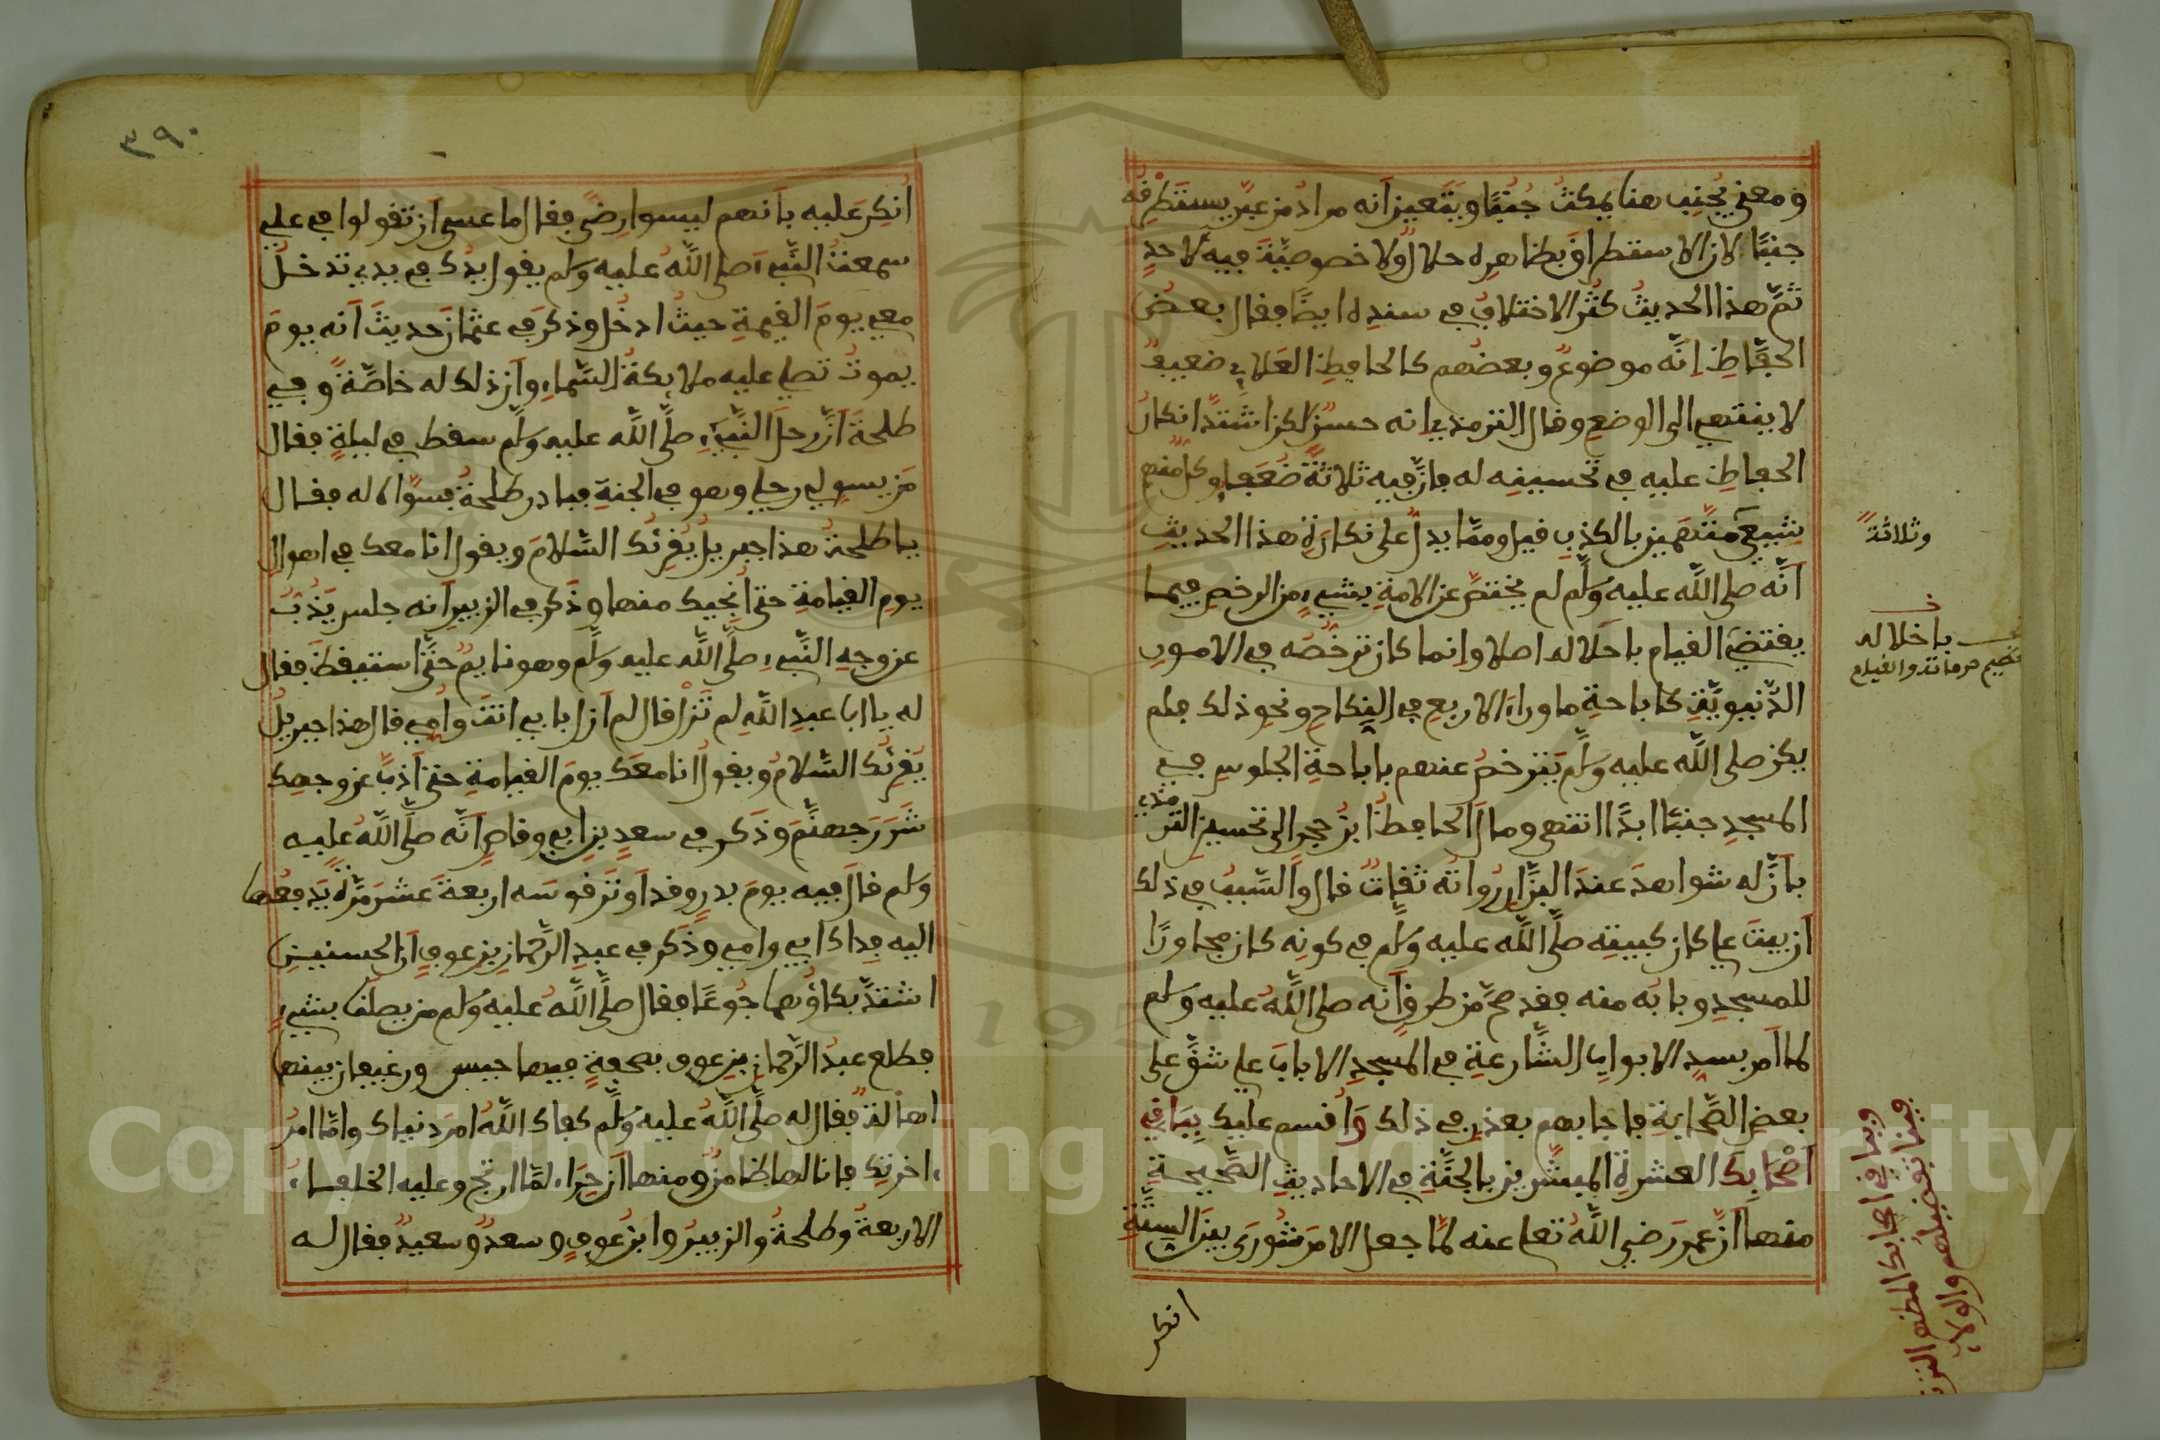 ومعنى يُجنِب هنا يمكث جُنُبًا ويتعين أنه مراد من عبّر يستطرقه
جنبًا لان الاستطراق بظاهره حلال ولا خصوصيّة فيه لاحدٍ
ثمّ هذا الحديث كثر الاختلاف في سنده ايضا فقال بعض
الحفّاظ إنّه موضوعٌ وبعضهم كالحافظ العلائي ضعيفٌ
لا ينتهي الى الوضع وقال الترمذي انه حسن لكن اشتدّ انكارُ
الحفاظ عليه في تحسينه له فان فيه ثلاثة ضُعَفاء وكل منهم
شيعيّ متهمين بالكذب قيل وممّا يدلّ على نكارة هذا الحديث
أنّه صلى الله عليه وسلم لم يختصّ عن الامة بشيءٍ من الرخص فيما
يقتضي القيام باحلاله اصلا وإنما كان ترخّصه في الامور
الدّنيويّة كاباحة ما وراء الاربع في النكاح ونحو ذلك فلم
يكن صلى الله عليه وسلم يترخص عنهم باباحة الجلوس في
المسجد جنبًا ابدًا انتهى ومال الحافظ ابن حجر الى تحسين الترمذي
بأنّ له شواهد عند البزّار رواته ثقاتٌ قال والسّبب في ذلك
أن بيت علي كان كبيته صلّى الله عليه وسلم في كونه كان مجاورًا
للمسجد وبابه منه فقد صحّ من طرقٍ أنه صلى الله عليه وسلم
لما أمر بسدّ الابواب الشّارعة في المسجد الا باب علي شقّ على
بعض الصّحابة فاجابهم بعذره في ذلك وَأقسم عليك بِبَاقي
أصْحَابِكَ العشرة المبشّرين بالجنّة في الاحاديث الصّحيحة
منها أنّ عمر رضي الله تعلى عنه لمّا جعل الامر شورى بين الستّة
انكر
وثلاثةٌ
باخلاله
وبباقي اصحابك المظهر
فينا تفضيلهم والولاء
٣٩٠
أنكِر عليه بأنهم ليسوا رضًى فقال ما عسى أن تقولوا في علي
سمعت النّبيء صلى الله عليه وسلم يقول يدك في يدي تدخل
معي يوم القيمة حيث ادخل وذكر في عثمان حديث أنه يوم
يموت تصلي عليه ملائكة السّماء وأن ذلك له خاصّةً وفي
طلحة أنّ رحل النّبيء صلّى الله عليه وسلم سقط في ليلةٍ فقال
من يسوي لي رحلي وهو في الجنة فبادر طلحة فسوّاه له فقال
يا طلحة هذا جبريل يُقرئك السّلام ويقول انا معك في اهوال
يوم القيامة حتى أنجيك منها وذكر في الزبير أنه جلس يَذُبّ
عن وجه النّبيء صلّى الله عليه وسلّم وهو نايم حتّى استيقظ فقال
له يا ابا عبد الله لم تَزَلْ قال لم ازل بابي انت وأمي قال هذا جبريل
يُقرئك السّلام ويقول انا معك يوم القيامة حتى أذبّ عن وجهك
شَرَرَ جهنّم وذكر في سعد بن ابي وقاص أنّه صلّى الله عليه
وسلم قال فيه يوم بدر وقد أوتر قوسه اربعة عشر مرّة يدفعها
اليه فداك ابي وامي وذكر في عبد الرّحمان بن عوف أن الحسنين
اشتدّ بكاؤهما جوعًا فقال صلّى الله عليه وسلم من يصلنا بشيءٍ
فطلع عبد الرّحمان بن عوف بصحفةٍ فيها حيس ورغيفان بينهما
اهالة فقال له صلّى الله عليه وسلّم كفاك الله امر دنياك وامّا امر
ءاخرتك فانا لها ضامن ومنها أن حراء لمّا ارتج وعليه الخلفاء
الاربعة وطلحة والزبير وابن عوفٍ وسعدٌ وسعيدٌ فقال له